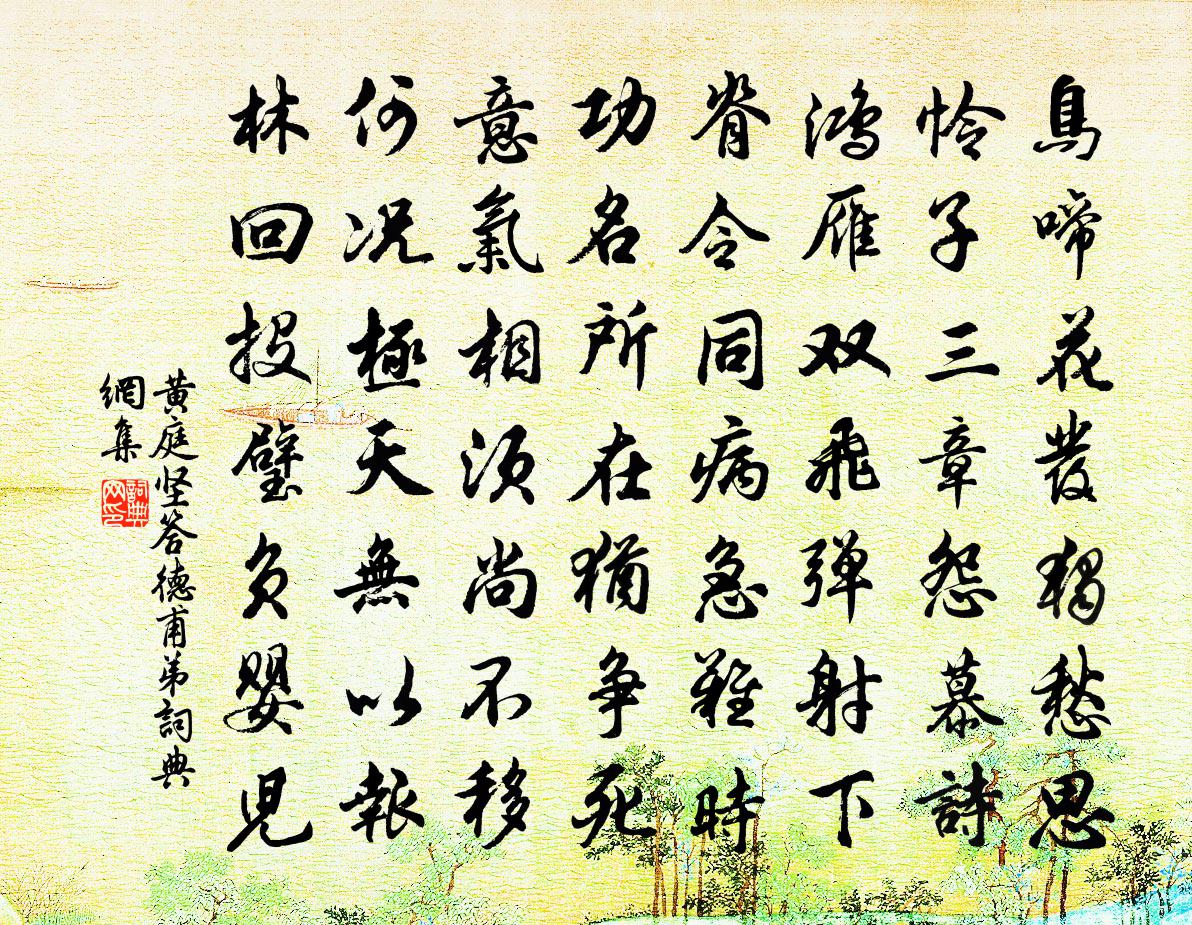 鳥啼花發獨愁思
怜子三章怨慕詩
鸿雁双飛弹射下
脊令同病急難時
功名所在猶争死
意氣相須尚不移
何况極天無以報
林回投璧负嬰児
黄庭坚答德甫弟詞典
網集
詞典
网印